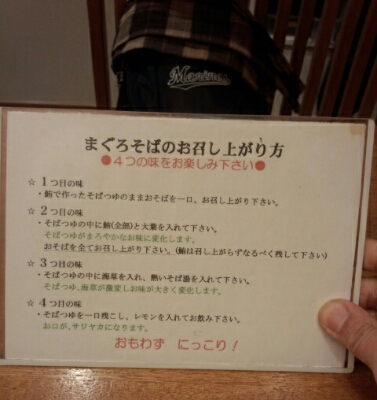 Marines
まぐろそばのお召し上がり方
●4つの味をお楽しみ下さい●
☆ 1つ目の味
・鮪で作ったそばつゆのままおそばを一口、お召し上がり下さい。
☆ 2つ目の味
・そばつゆの中に鮪(全部)と大葉を入れて下さい。
そばつゆがまろやかなお味に変化します。
おそばを全てお召し上がり下さい。(鮪は召し上がらずなるべく残して下さい)
☆ 3つ目の味
・そばつゆの中に海草を入れ、熱いそば湯を入れて下さい。
そばつゆ、海草が激変しお味が大きく変化します。
☆ 4つ目の味
・そばつゆを一口残こし、レモンを入れてお飲み下さい。
お口が、サワヤカになります。
おもわず にっこり!